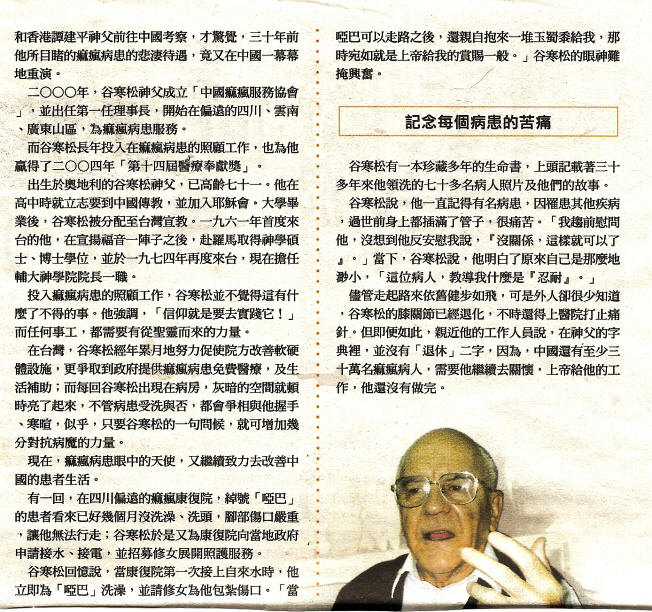 和香港譚建平神父前往中國考察，才驚覺，三十年前
他所目睹的癲瘋病患的悲淒待遇，竟又在中國一幕幕
地重演。
二〇〇〇年，谷寒松神父成立「中國癲瘋服務協會
」，並出任第一任理事長，開始在偏遠的四川、雲南
、廣東山區，為癲瘋病患服務。
而谷寒松長年投入在癲瘋病患的照顧工作，也為他
贏得了二〇〇四年「第十四屆醫療奉獻獎」。
出生於奧地利的谷寒松神父，已高齡七十一。他在
高中時就立志要到中國傳教，並加入耶穌會。大學畢
業後，谷寒松被分配至台灣宣教。一九六一年首度來
台的他，在宣揚福音一陣子之後，赴羅馬取得神學碩
士、博士學位，並於一九七四年再度來台，現在擔任
輔大神學院院長一職。
投入癲瘋病患的照顧工作，谷寒松並不覺得這有什
麼了不得的事。他強調，「信仰就是要去實踐它！」
而任何事工，都需要有從聖靈而來的力量。
在台灣，谷寒松經年累月地努力促使院方改善軟硬
體設施，更爭取到政府提供癲瘋病患免費醫療，及生
活補助；而每回谷寒松出現在病房，灰暗的空間就頓
時亮了起來，不管病患受洗與否，都會爭相與他握手
、寒暄，似乎，只要谷寒松的一句問候，就可增加幾
分對抗病魔的力量。
現在，癲瘋病患眼中的天使，又繼續致力去改善中
國的患者生活。
有一回，在四川偏遠的癲瘋康復院，綽號「啞巴」
的患者看來已好幾個月沒洗澡、洗頭，腳部傷口嚴重
，讓他無法行走；谷寒松於是又為康復院向當地政府
申請接水、接電，並招募修女展開照護服務。
谷寒松回憶說，當康復院第一次接上自來水時，他
立即為「啞巴」洗澡，並請修女為他包紮傷口。「當
啞巴可以走路之後，還親自抱來一堆玉蜀黍給我，那
時宛如就是上帝給我的賞賜一般。」谷寒松的眼神難
掩興奮。
記念每個病患的苦痛
谷寒松有一本珍藏多年的生命書，上頭記載著三十
多年來他領洗的七十多名病人照片及他們的故事。
谷寒松說，他一直記得有名病患，因罹患其他疾病
，過世前身上都插滿了管子，很痛苦。「我趨前慰問
他，沒想到他反安慰我說，『沒關係，這樣就可以了
』。」當下，谷寒松說，他明白了原來自己是那麼地
渺小，「這位病人，教導我什麼是『忍耐』。」
儘管走起路來依舊健步如飛，可是外人卻很少知道
，谷寒松的膝關節已經退化，不時還得上醫院打止痛
針。但即便如此，親近他的工作人員說，在神父的字
典裡，並沒有「退休」二字，因為，中國還有至少三
十萬名癲瘋病人，需要他繼續去關懷，上帝給他的工
作，他還沒有做完。